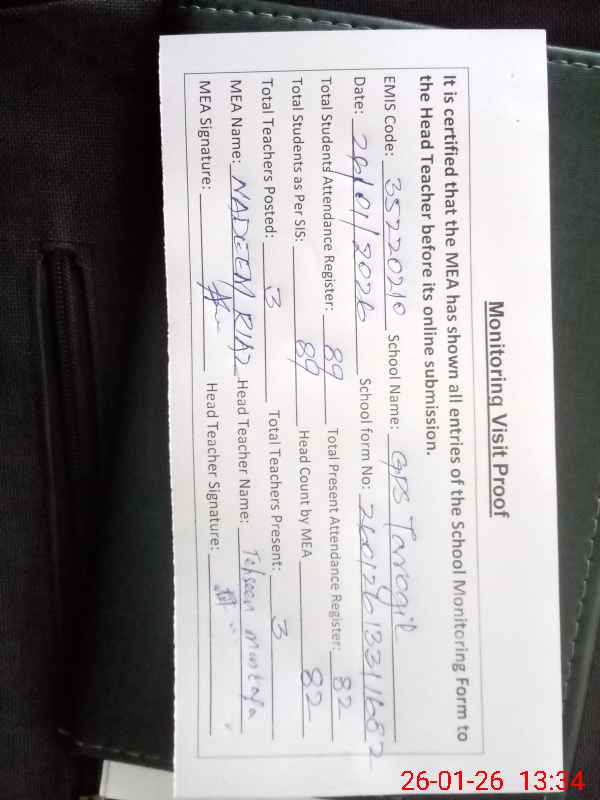 Monitoring Visit Proof
It is certified that the MEA has shown all entries of the School Monitoring Form to
the Head Teacher before its online submission.
EMIS Code: 35220210 School Name: GPS
Date: 26/01/2026 School form No:
Total Students Attendance Register: 89 Total Present Attendance Register: 82
Total Students as Per SIS: 89 Head Count by MEA 82
Total Teachers Posted: 3 Total Teachers Present: 3
MEA Name: NADEEM RIAZ Head Teacher Name:
MEA Signature: Head Teacher Signature:
26-01-26 13:34